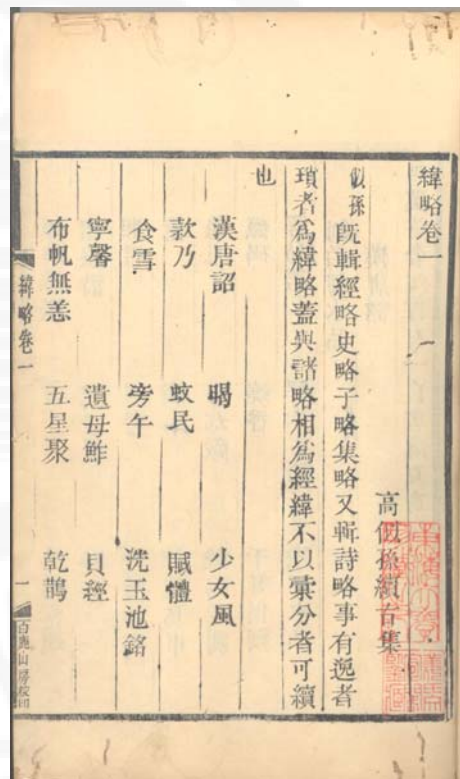 緯略卷一
高似孫續古集
似孫既輯經略史略子略集略又輯詩略事有逸者
瑣者為緯略蓋與諸略相為經緯不以彙分者可續
也
漢唐詔 喝 少女風
款乃 蚊民 賦體
食雪 旁午 洗玉池銘
寧馨 遺母鮓 貝經
布帆無恙 五星聚 乾鵲
緯略卷一 一 白鹿山房校印